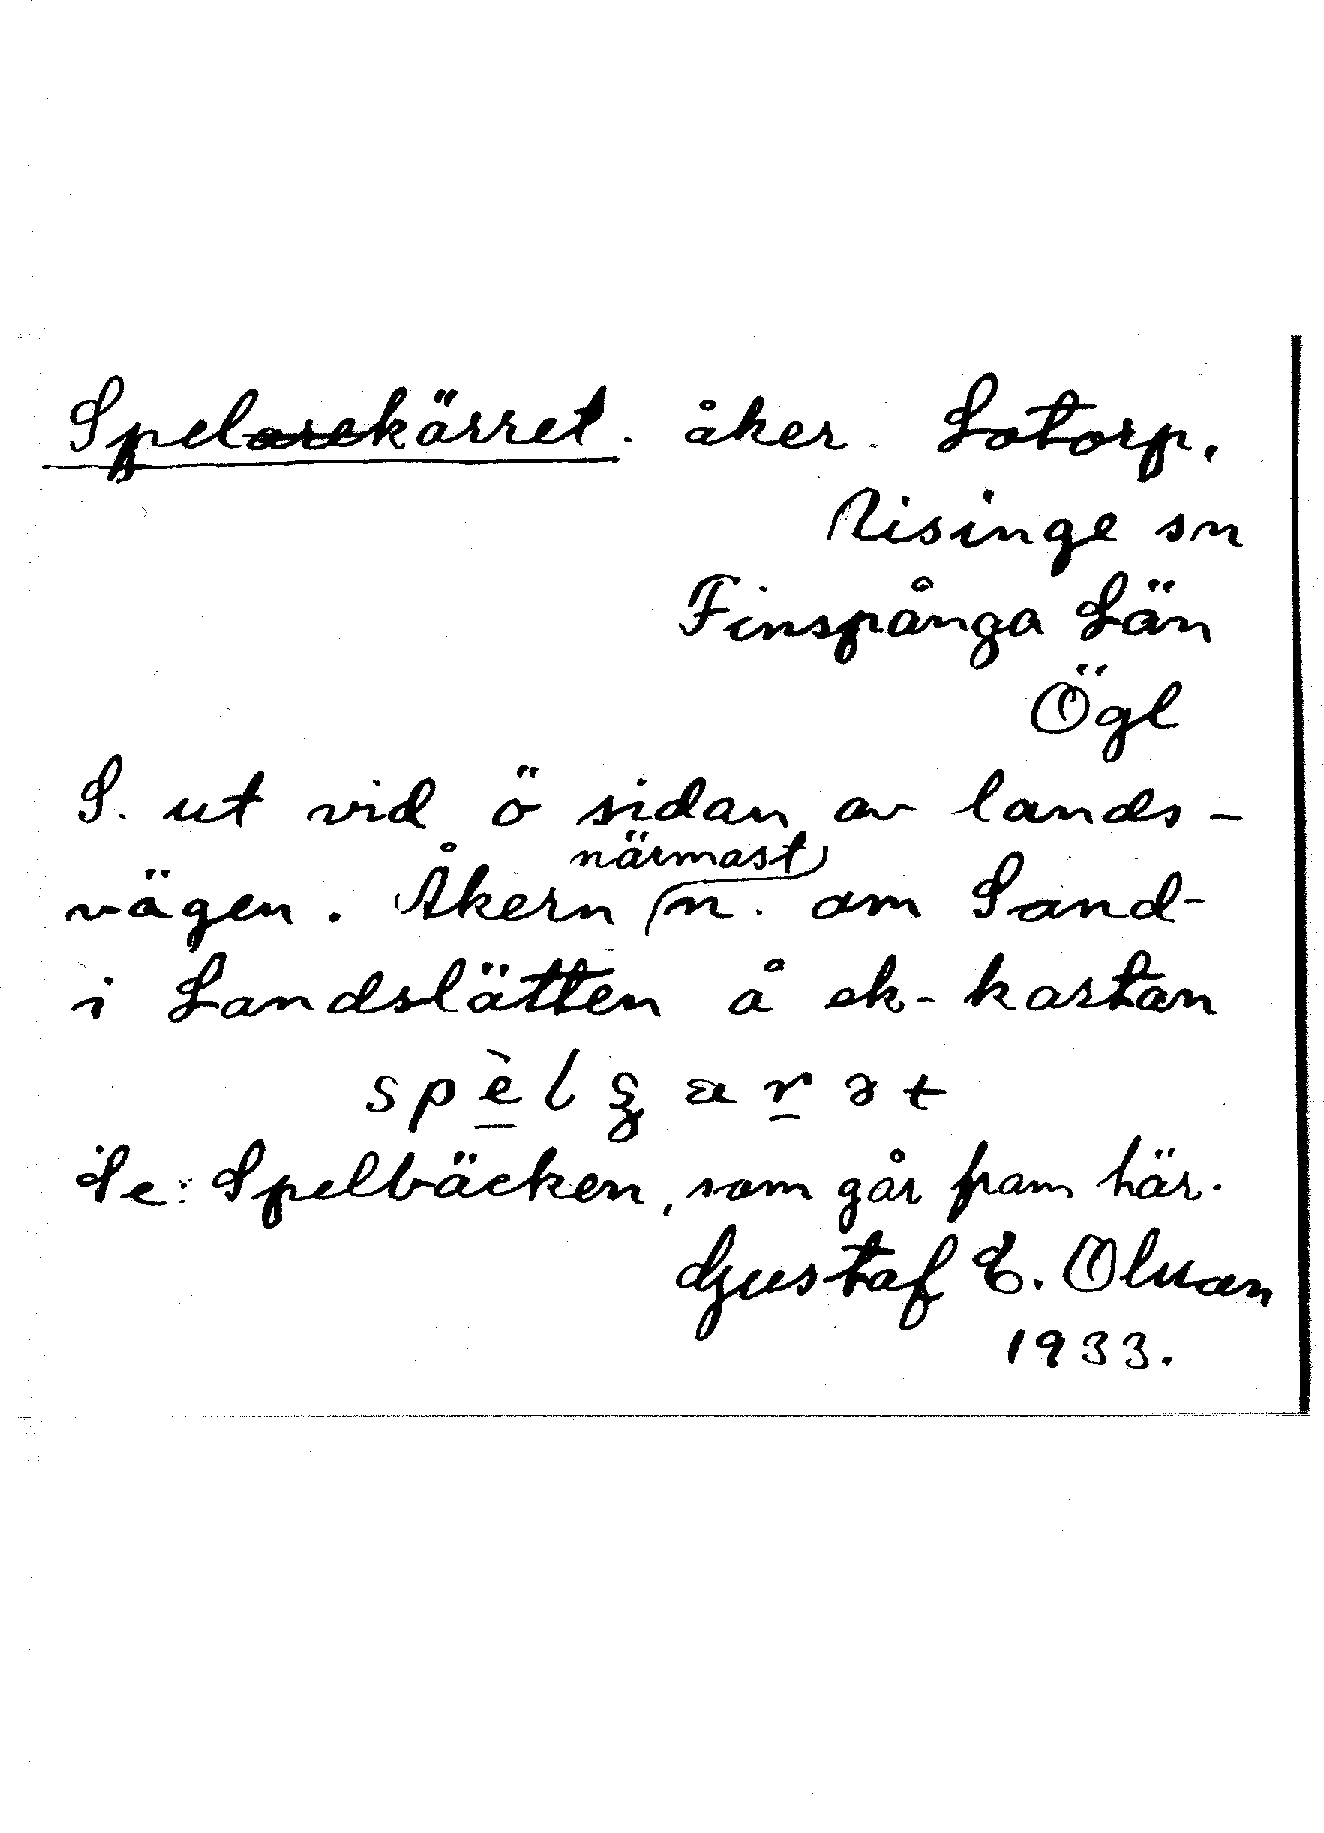 Spelkärret. åker. Lotorp.
Risinge sn
Finspånga Län
Ögl
S. ut vid ö sidan av lands-
vägen. Åkern närmast n. om Sand-
i Landslätten å ek-kartan
Se: Spelbäcken, som går fram här.
Gustaf E. Olsson
1933.